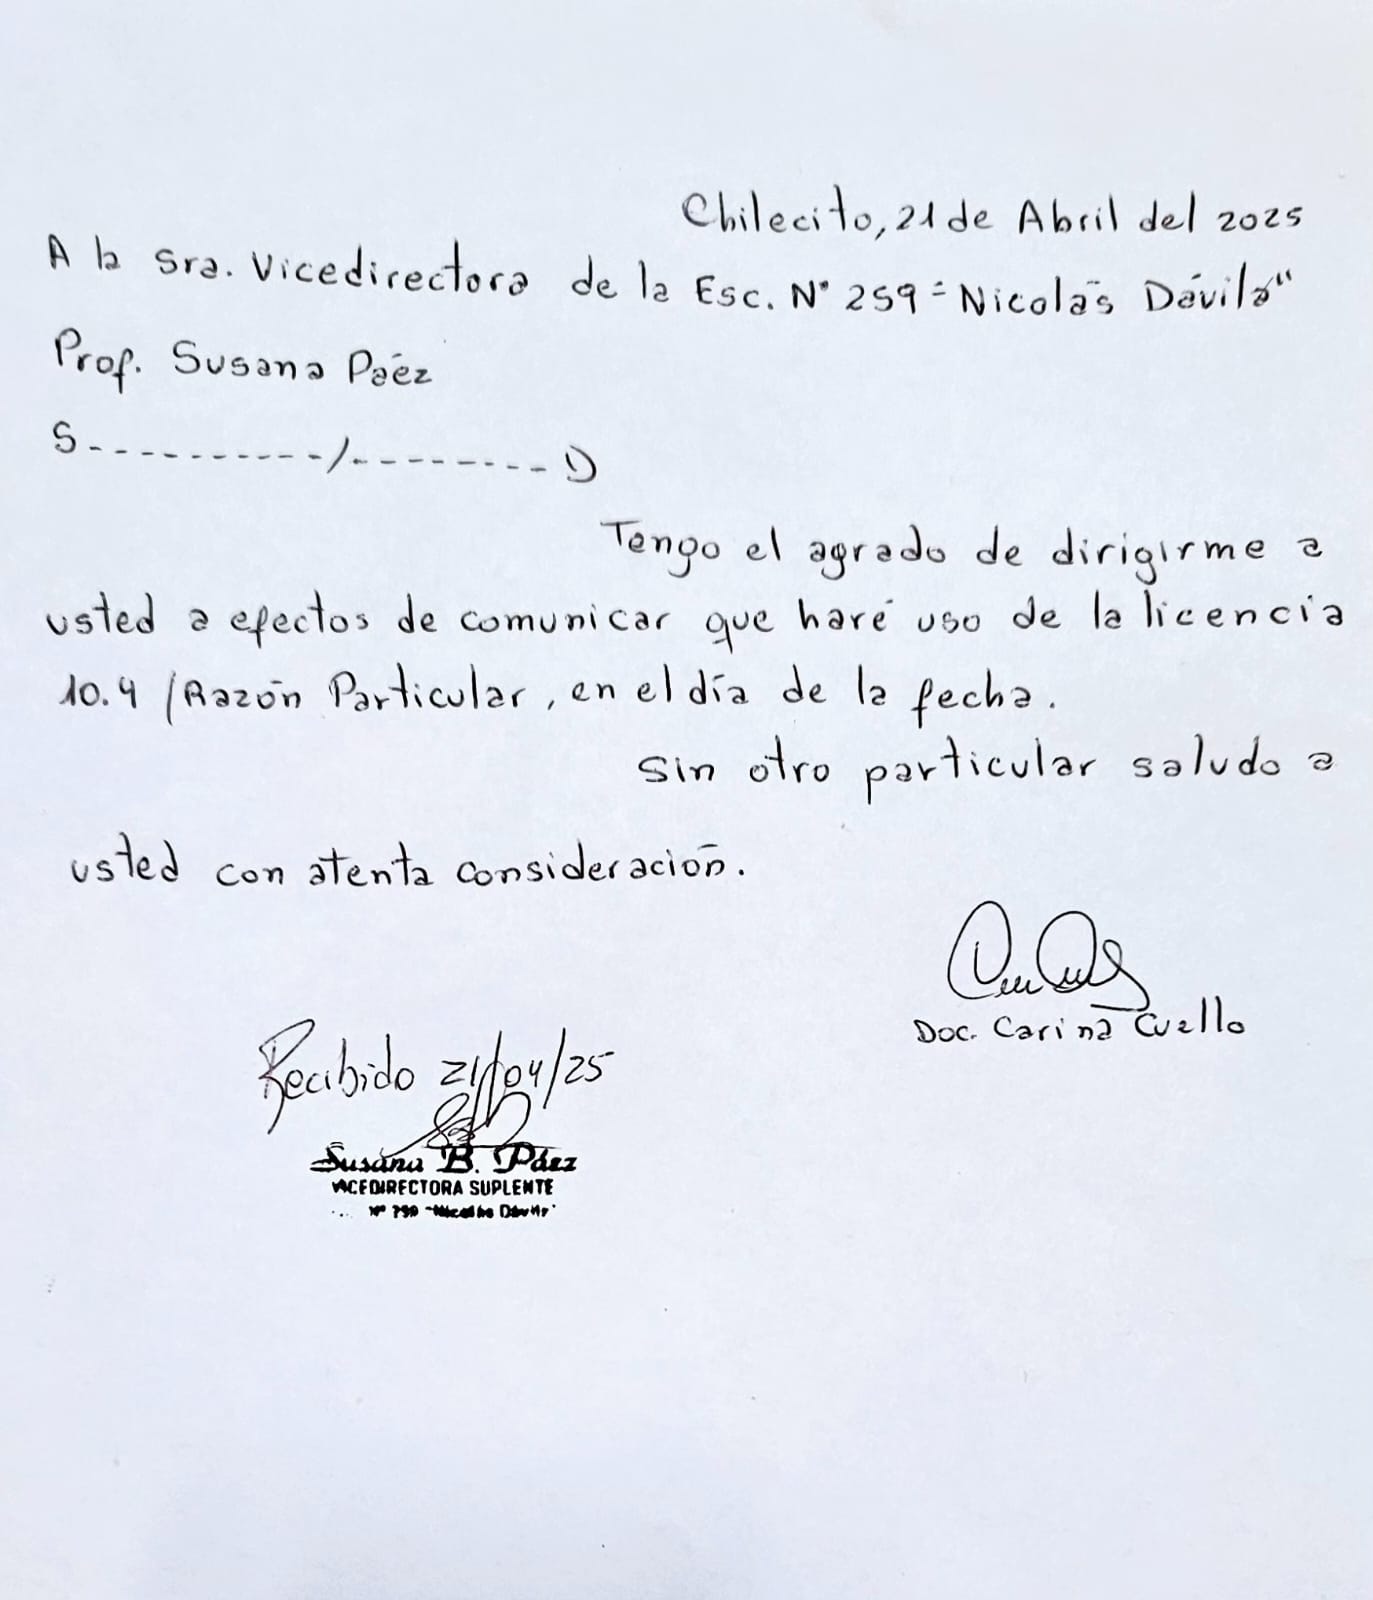 Chilecito, 21 de Abril del 2025
A la Sra. Vicedirectora de la Esc. N° 259 "Nicolás Dávila"
Prof. Susana Paéz
S-----------/---------D
Tengo el agrado de dirigirme a
usted a efectos de comunicar que haré uso de la licencia
10.4 / Razón Particular, en el día de la fecha.
Sin otro particular saludo a
usted con atenta consideración.
Doc. Carina Cuello
Recibido 21/04/25
Susana B. Páez
VICEDIRECTORA SUPLENTE